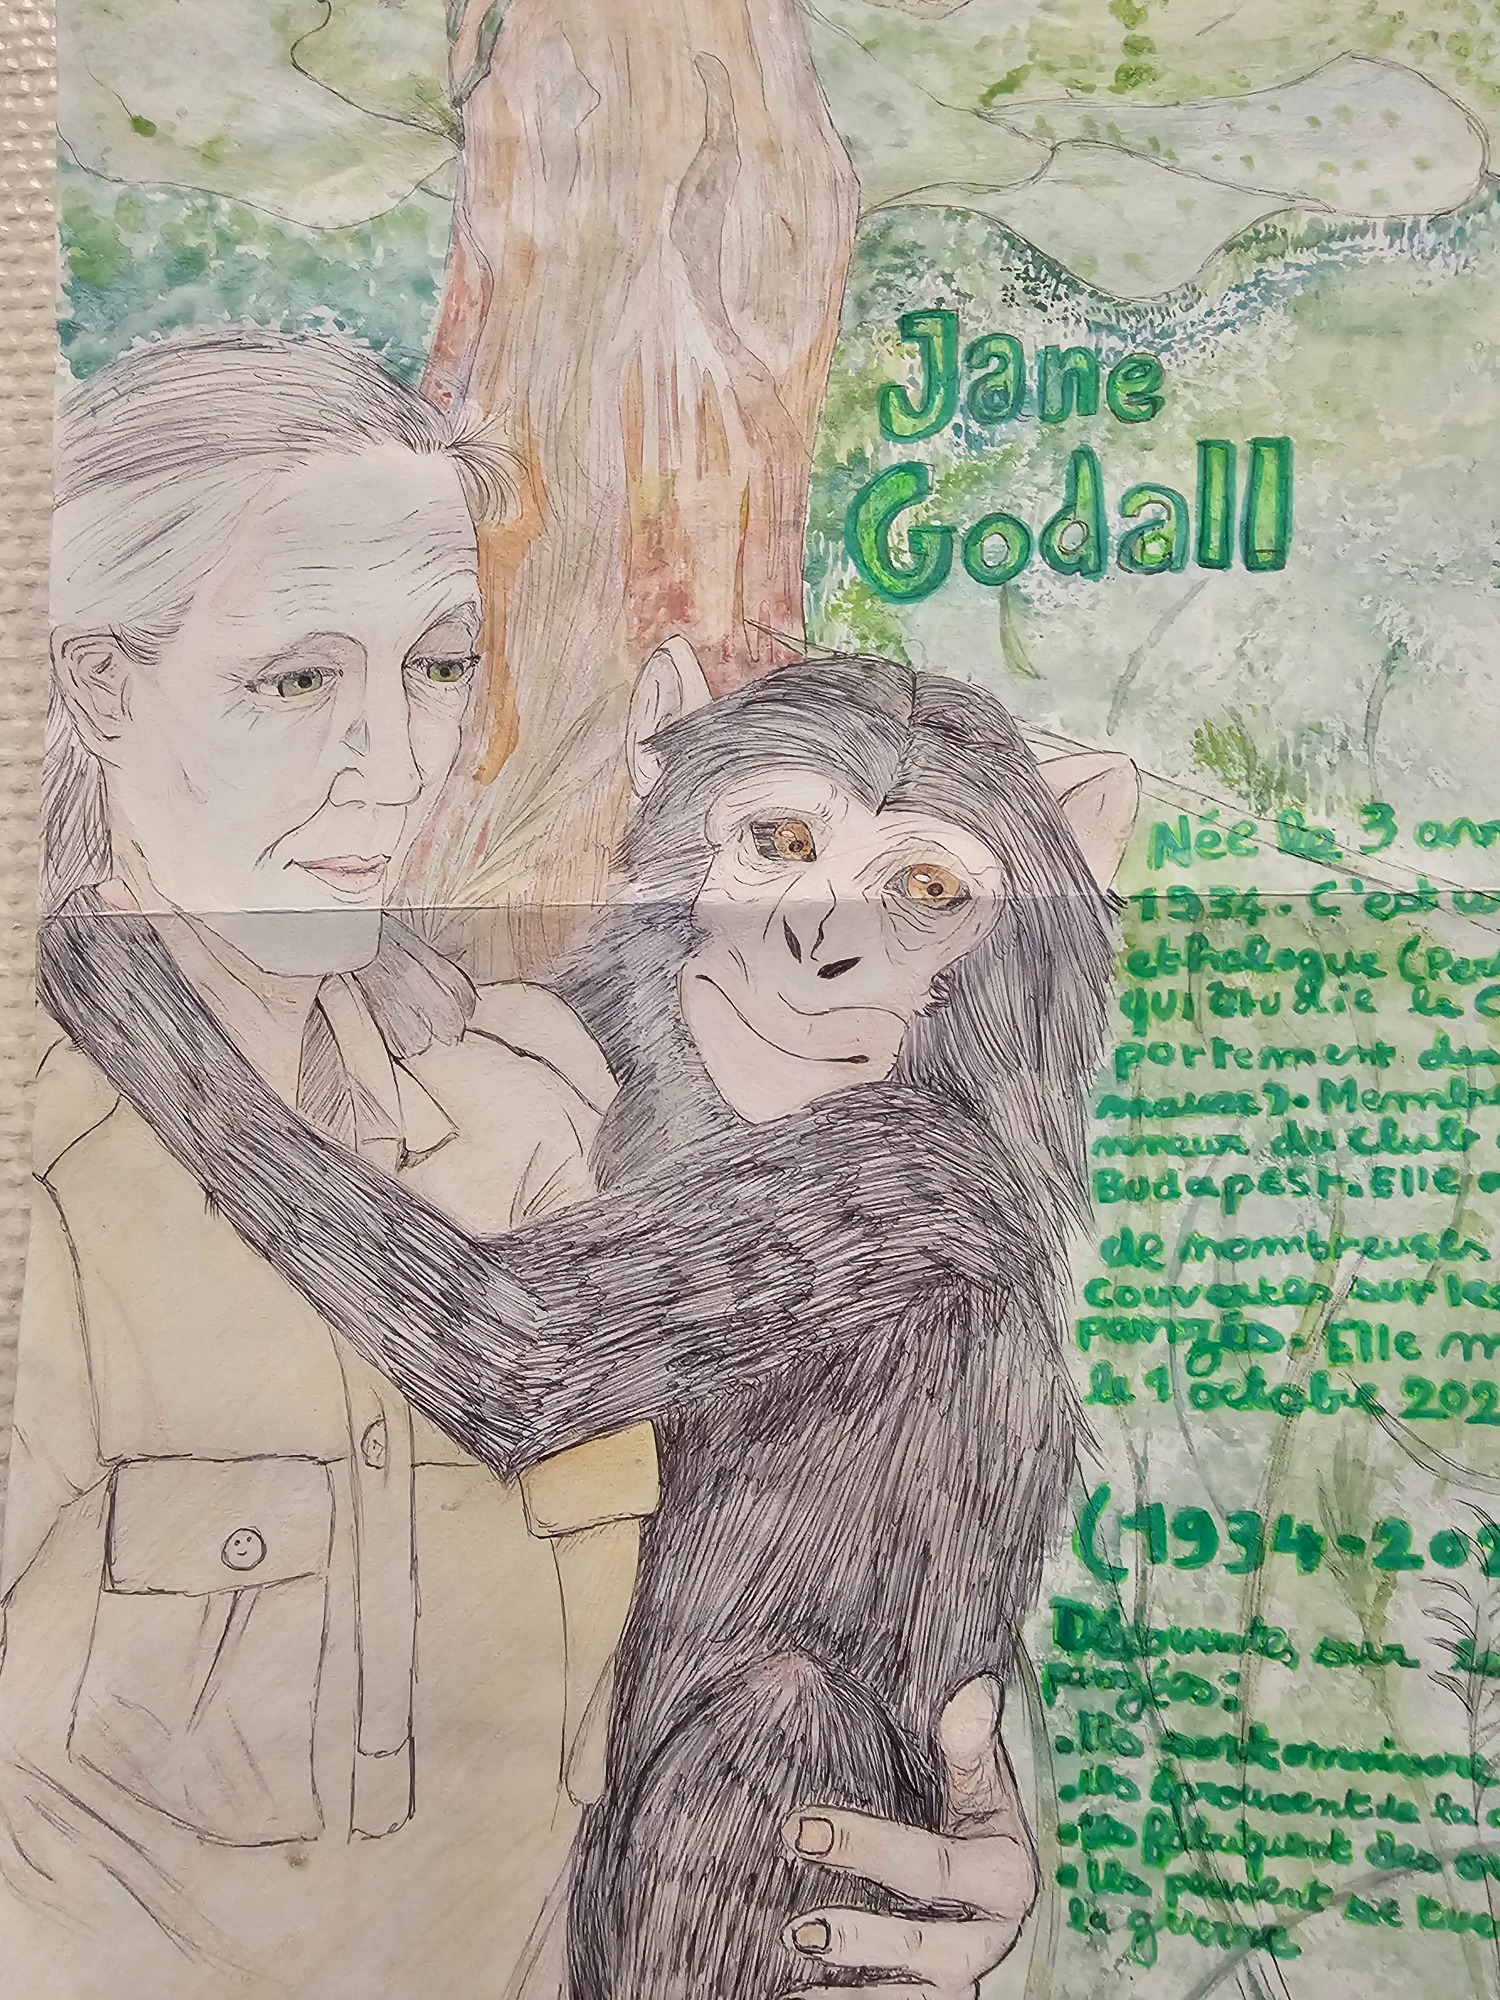 Jane
Godall
Née le 3 avr
1934. C'est u
ethologue (Per
qui étudie le C
portement des
Membre
du club
Budapest. Elle a
de nombreuses
couvertes sur les
panzés. Elle m
le 1 octobre 202
(1934-202
Découvertes sur
panzés:
• Ils sont omnivore
• Ils éprouvent de la
• Ils fabriquent des
• Ils peuvent se tue
la guerre